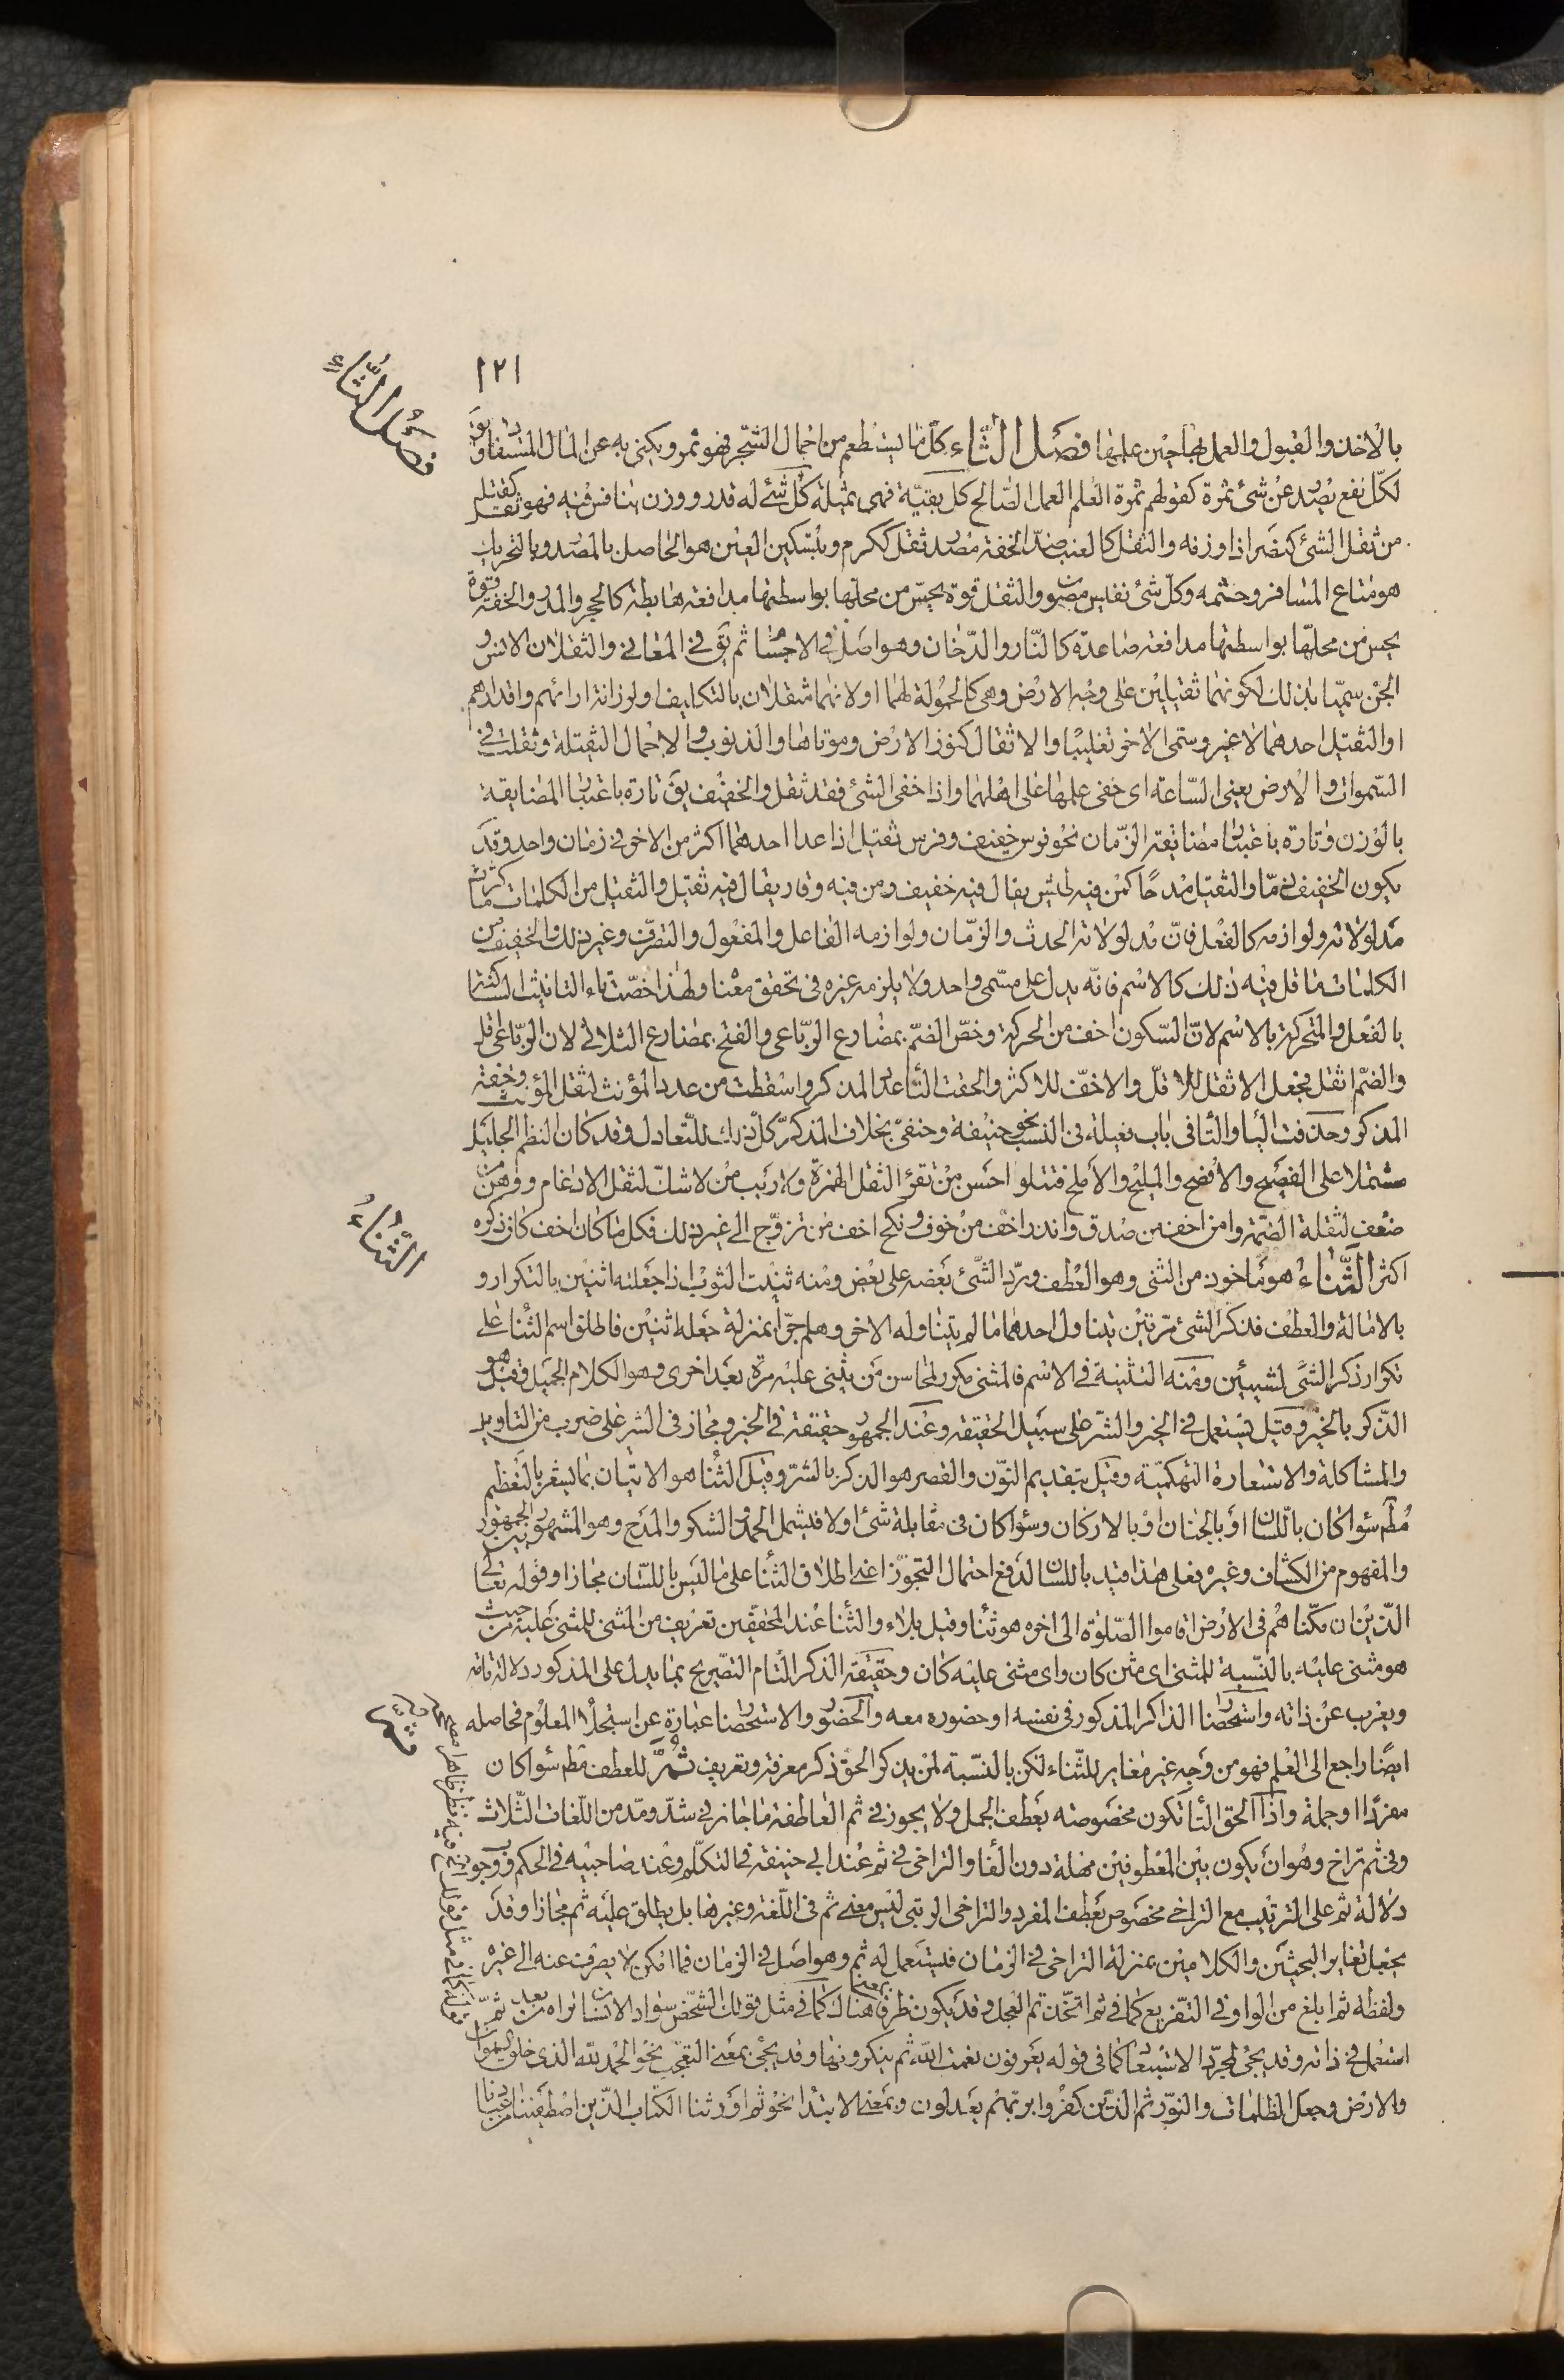 ١٢١
فصل الثاء
بالاخذ والقبول والعمل بها حين علمها فصل الثاء كل ما يستطعم من احمال الشجر فهو ثمر ويكنى به عن المال المستفاد ويق
لكل نفع يصدر عن شئ ثمرة كقولهم ثمرة العلم العمل الصالح كل بقية فهى ثميلة كل شئ له قدر ووزن يتنافس فيه فهو ثقل
من ثقل الشئ كنصر اذا وزنه والثقل كالعنب ضد الخفة مصدر ثقل ككرم وبتسكين العين هو الحاصل بالمصدر وبالتحريك
هو متاع المسافر وحشمه وكل شئ نفيس مصون والثقل قوة يحس من محلها بواسطتها مدافعة هابطة كالحجر والمدر والخفة قوة
يحس من محلها بواسطتها مدافعة صاعدة كالنار والدخان وهو اصل فى الاجسام ثم يق فى المعانى والثقلان الانس و
الجن سميا بذلك لكونهما ثقيلين على وجه الارض وهى كالحمولة لهما او لانهما مثقلان بالتكليف او لرزانة ارائهم واقدارهم
او الثقيل احدهما لا غير وسمى الاخر تغليبا والاثقال كنوز الارض وموتاها والذنوب والاحمال الثقيلة وثقلت فى
السموات والارض يعنى الساعة اى خفى علمها على اهلهما واذا خفى الشئ فقد ثقل والخفيف يق تارة باعتبار المضايقة
بالوزن وتارة باعتبار مضايقة الزمان نحو فرس خفيف وفرس ثقيل اذا عدا احدهما اكثر من الاخر فى زمان واحد وقد
يكون الخفيف ذما والثقيل مدحا كمن فيه طيش يقال فيه خفيف ومن فيه وقار يقال فيه ثقيل والثقيل من الكلمات ما كثرت
مدلولاته ولوازمه كالفعل فان مدلولاته الحدث والزمان ولوازمه الفاعل والمفعول والتصرف وغير ذلك والخفيف من
الكلمات ما قل فيه ذلك كالاسم فانه يدل على مسمى واحد ولا يلزمه غيره فى تحقق معناه ولهذا خصت تاء التانيث الساكنة
بالفعل والمتحركة بالاسم لان السكون اخف من الحركة وخص الضم بمضارع الرباعى والفتح بمضارع الثلاثى لان الرباعى اقل
والضم اثقل فجعل الاثقل للاقل والاخف للاكثر والحقت التاء عدد المذكر واسقطت من عدد المؤنث لثقل المؤنث وخفة
المذكر وحذفت الياء والتاء فى باب فعيلة فى النسب نحو حنيفة وحنفى بخلاف المذكر كل ذلك للتعادل وقد كان النظم الجليل
مشتملا على الفصيح والافصح والمليح والاملح فتتلو احسن من تقرء لثقل الهمزة ولا ريب من لا شك لثقل الادغام ووهن من
ضعف لثقلة الضمة وامن اخف من صدق وانذر اخف من خوف ونكح اخف من تزوج الى غير ذلك فكل ما كان اخف كان ذكره
اكثر الثناء هو ماخوذ من الثنى وهو العطف ورد الشئ بعضه على بعض ومنه ثنيت الثوب اذا جعلته اثنين بالتكرار و
الثناء
بالامالة والعطف فذكر الشئ مرتين يتناول احدهما ما لم يتناوله الاخر وهلم جرا بمنزلة جعله اثنين فاطلق اسم الثناء على
تكرار ذكر الشئ لشيئين ومنه التثنية فى الاسم فالمثنى مكرر لمحاسن من يثنى عليه مرة بعد اخرى وهو الكلام الجميل وقيل هو
الذكر بالخير وقيل يستعمل فى الخير والشر على سبيل الحقيقة وعند الجمهور حقيقة فى الخير ومجاز فى الشر على ضرب من التاويل
والمشاكلة والاستعارة التهكمية وقيل بتقديم النون والقصر هو الذكر بالشر وقيل الثناء هو الاتيان بما يشعر بالتعظيم
مطم سواء كان باللسان او بالجنان او بالاركان وسواء كان فى مقابلة شئ اولا فيشمل الحمد والشكر والمدح وهو المشهور بين الجمهور
والمفهوم من الكشاف وغيره فعلى هذا قيد باللسان لدفع احتمال التجوز اعنى اطلاق الثناء على ما ليس باللسان مجازا وقوله تعالى
الذين ان مكناهم فى الارض اقاموا الصلوة الى اخره هو ثناء وقيل بلاء والثناء عند المحققين تعريف من المثنى للمثنى عليه من حيث
هو مثنى عليه بالنسبة للمثنى اى مثن كان واى مثنى عليه كان وحقيقة الذكر التام التصريح بما يدل على المذكور دلالة تامة
ويعرب عن ذاته واستحضار الذاكر المذكور فى نفسه او حضوره معه والحضور والاستحضار عبارة عن استجلاء المعلوم فحاصله
ايضا راجع الى العلم فهو من وجه غير مغاير للثناء لكن بالنسبة لمن يذكر الحق ذكر معرفة وتعريف ثم للعطف مطم سواء كان
ثم
مفردا او جملة واذا الحق التاء تكون مخصوصة بعطف الجمل ولا يجوز فى ثم العاطفة ما جاز فى شد ومد من اللغات الثلاث
وفى ثم تراخ وهو ان يكون بين المعطوفين مهلة دون الفاء والتراخى فى ثم عند ابى حنيفة فى التكلم وعند صاحبيه فى الحكم ووجوب
دلالة ثم على الترتيب مع التراخى مخصوص بعطف المفرد والتراخى الرتبى ليس معنى ثم فى اللغة وغيرها بل يطلق عليه ثم مجازا وقد
يجعل تغاير البحثين والكلامين بمنزلة التراخى فى الزمان فيستعمل له ثم وهو اصل فى الزمان فما امكن لا يصرف عنه الى غيره
ولفظة ثم ابلغ من الواو فى التقريع كما فى ثم اتخذتم العجل وقد يكون ظرفا بمعنى هناك كما فى مثل قولك الشخص سواد الانسان تراه من بعد ثم
استعمل فى ذاته وقد يجئ لمجرد الاستبعاد كما فى قوله يعرفون نعمت الله ثم ينكرونها وقد يجئ بمعنى التعجب نحو الحمد لله الذى خلق السموات
والارض وجعل الظلمات والنور ثم الذين كفروا بربهم يعدلون وبمعنى الابتداء نحو ثم اورثنا الكتاب الذين اصطفينا من عبادنا